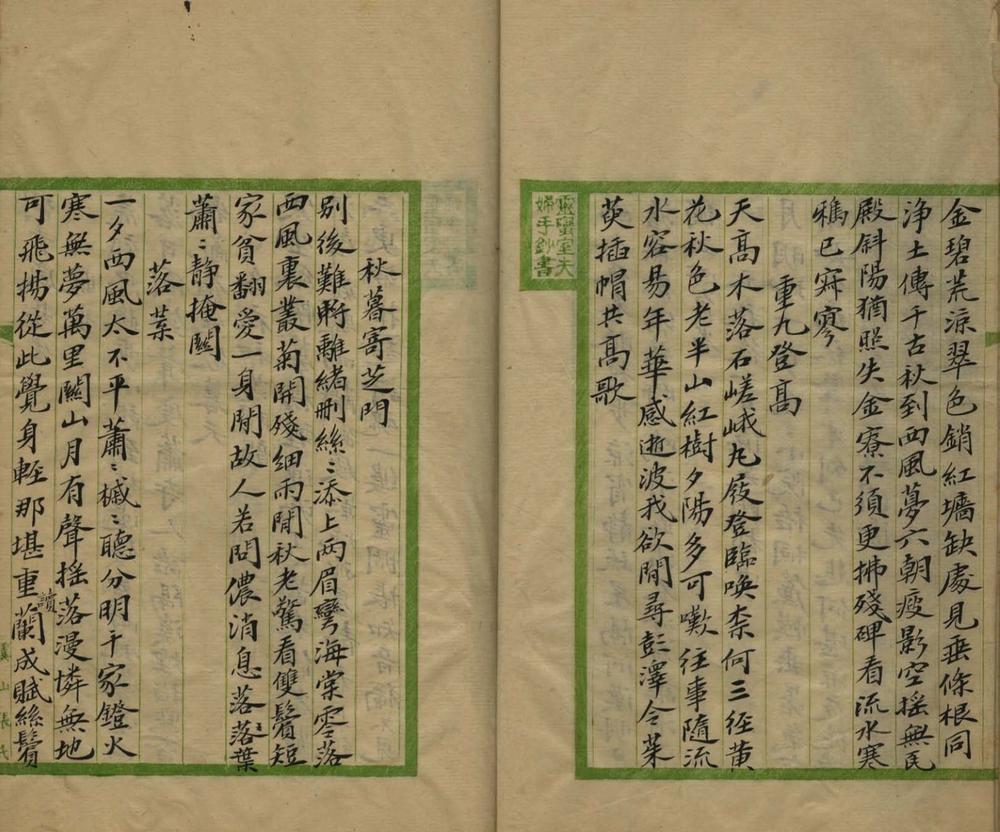 金碧荒涼翠色銷紅墻缺處見垂條根同
浄土傳千古秋到西風夢六朝疲影空搖無民
殿斜陽猶照失金寮不須更拂殘碑看流水寒
鴉已寂寥
重九登高
天高木落石嵯峨九屐登臨喚柰何三径黄
花秋色老半山紅樹夕陽多可嘆往事隨流
水容易年華感逝波我欲閒尋彭澤令茱
萸插帽共高歌
靈蜜室夫
婦手鈔書
秋暮寄芝門
别後難斷離緒刪絲〻添上兩眉彎海棠零落
西風裏叢菊開殘細雨間秋老驚看雙鬢短
家貧翻愛一身閒故人若問儂消息落落葉
蕭〻靜掩關
落葉
一夕西風太不平蕭〻槭〻聽分明千家鐙火
寒無夢萬里關山月有聲搖落漫憐無地
可飛揚從此覺身輕那堪重讀蘭成賦絲鬢